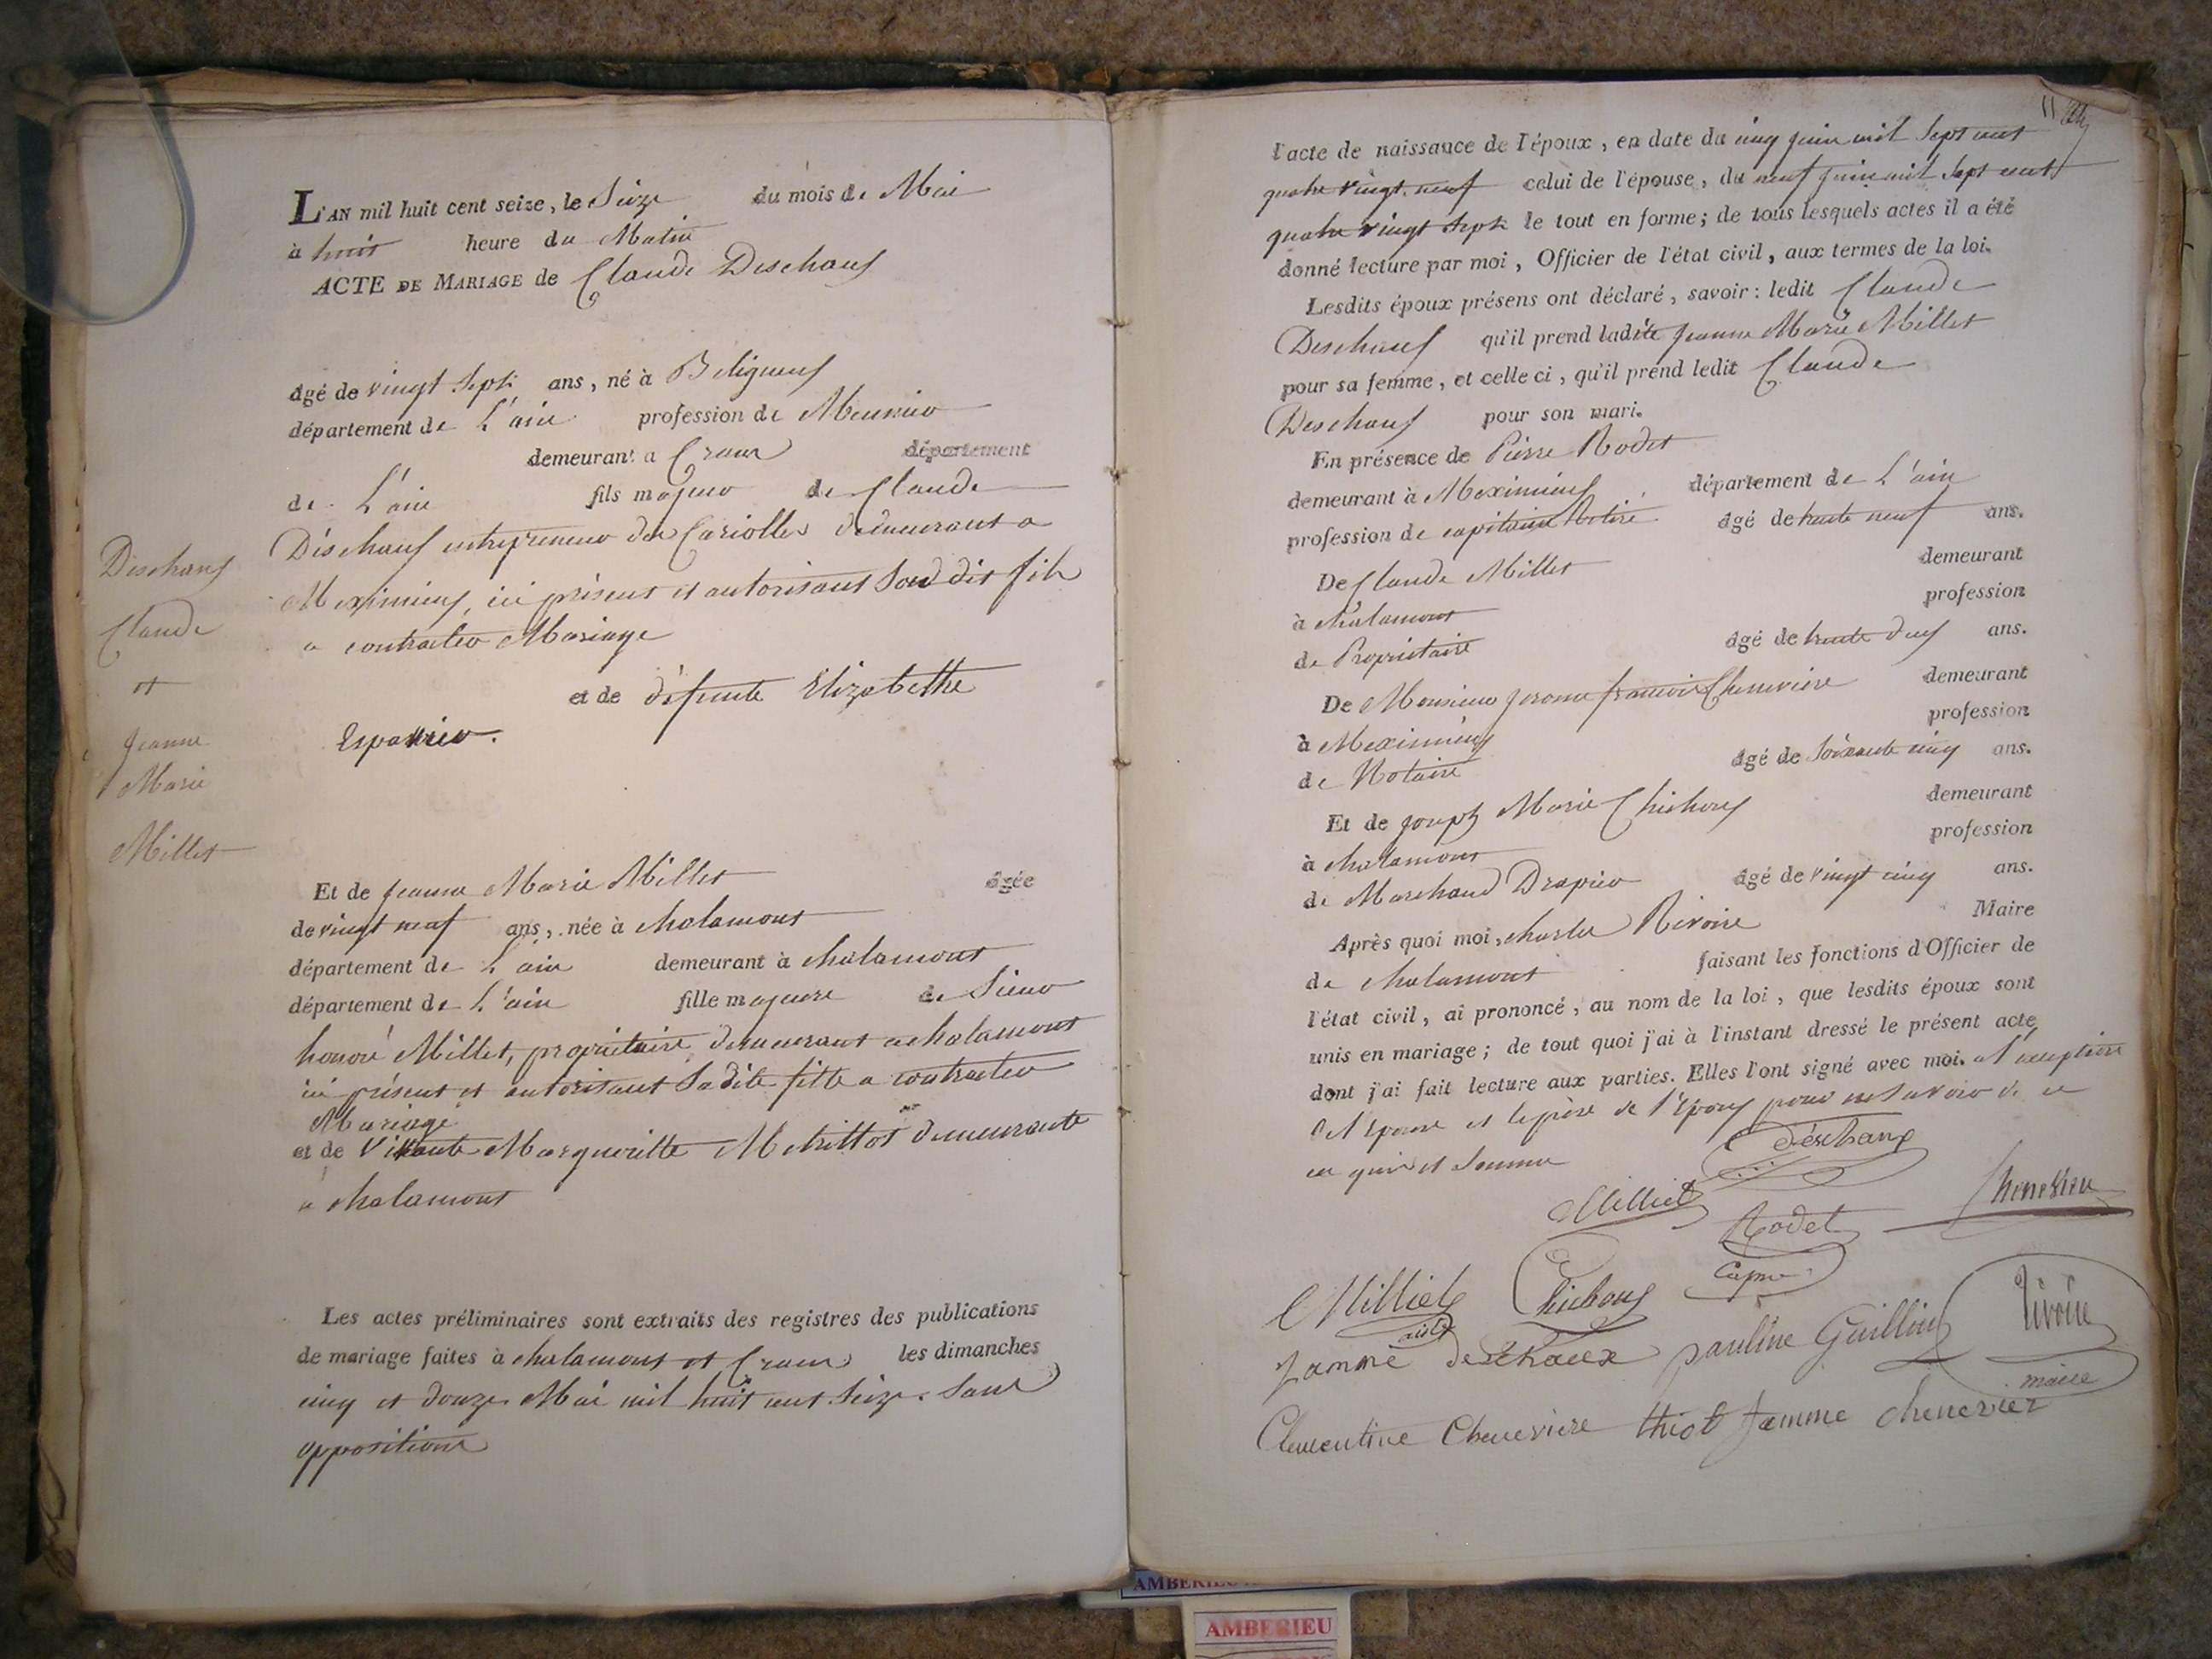 Deschaux
Claude
et
Jeanne
Marie
Millet
L'AN mil huit cent seize, le Seize du mois de Mai
à huit heure du Matin
ACTE DE MARIAGE de Claude Deschaux
âgé de vingt Sept ans, né à Beligneux
département de L'ain profession de Meunier
demeurant a Crans département
de L'ain fils majeur de Claude
Deschaux entrepreneur des Carioles demeurant a
Meximieux, ici présent et autorisant Son dit fils
a contracter Mariage
et de défunte Elizabethe
Et de Jeanne Marie Millet âgée
de vingt neuf ans, née à chalamont
département de L'ain demeurant à chalamont
département de L'ain fille majeure de Sieur
honoré Millet, propriétaire demeurant a chalamont
ici présent et autorisant Sadite fille a contracter
Mariage
et de Vivante Margueritte demeurante
a chalamont
Les actes préliminaires sont extraits des registres des publications
de mariage faites à chalamont et Crans les dimanches
cinq et douze Mai mil huit cent Seize. Sans
oppositions
11
l'acte de naissance de l'époux, en date du cinq juin mil Sept cent
quatre vingt neuf celui de l'épouse, du neuf juin mil Sept cent
quatre vingt Sept le tout en forme; de tous lesquels actes il a été
donné lecture par moi, Officier de l'état civil, aux termes de la loi.
Lesdits époux présens ont déclaré, savoir: ledit Claude
Deschaux qu'il prend ladite Jeanne Marie Millet
pour sa femme, et celle ci, qu'il prend ledit Claude
Deschaux pour son mari.
En présence de Pierre Rodet
demeurant à Meximieux département de L'ain
profession de capitaine Retiré âgé de trente neuf ans.
De Claude Millet demeurant
à chalamont profession
de Propriétaire âgé de trente deux ans.
De Monsieur Jerome francois Chenevière demeurant
à Meximieux profession
de Notaire âgé de Soixante cinq ans.
Et de Joseph Marie Chichoux demeurant
à chalamont profession
de Marchand Drapier âgé de vingt cinq ans.
Après quoi moi, charles Rivoire Maire
de chalamont faisant les fonctions d'Officier de
l'état civil, ai prononcé, au nom de la loi, que lesdits époux sont
unis en mariage; de tout quoi j'ai à l'instant dressé le présent acte
dont j'ai fait lecture aux parties. Elles l'ont signé avec moi. a l'exception
de l'épouse et le père de l'époux pour ne Savoir de ce
enquis et Sommé
déschaux
Milliet
Rodet
Chenevier
Capne
Milliet
Chichoux
Rivoire
ainé
femme deschaux pauline Guillin
maire
Clementine Cheneviere thiot femme chenevier
AMBERIEU
AMBERIEU